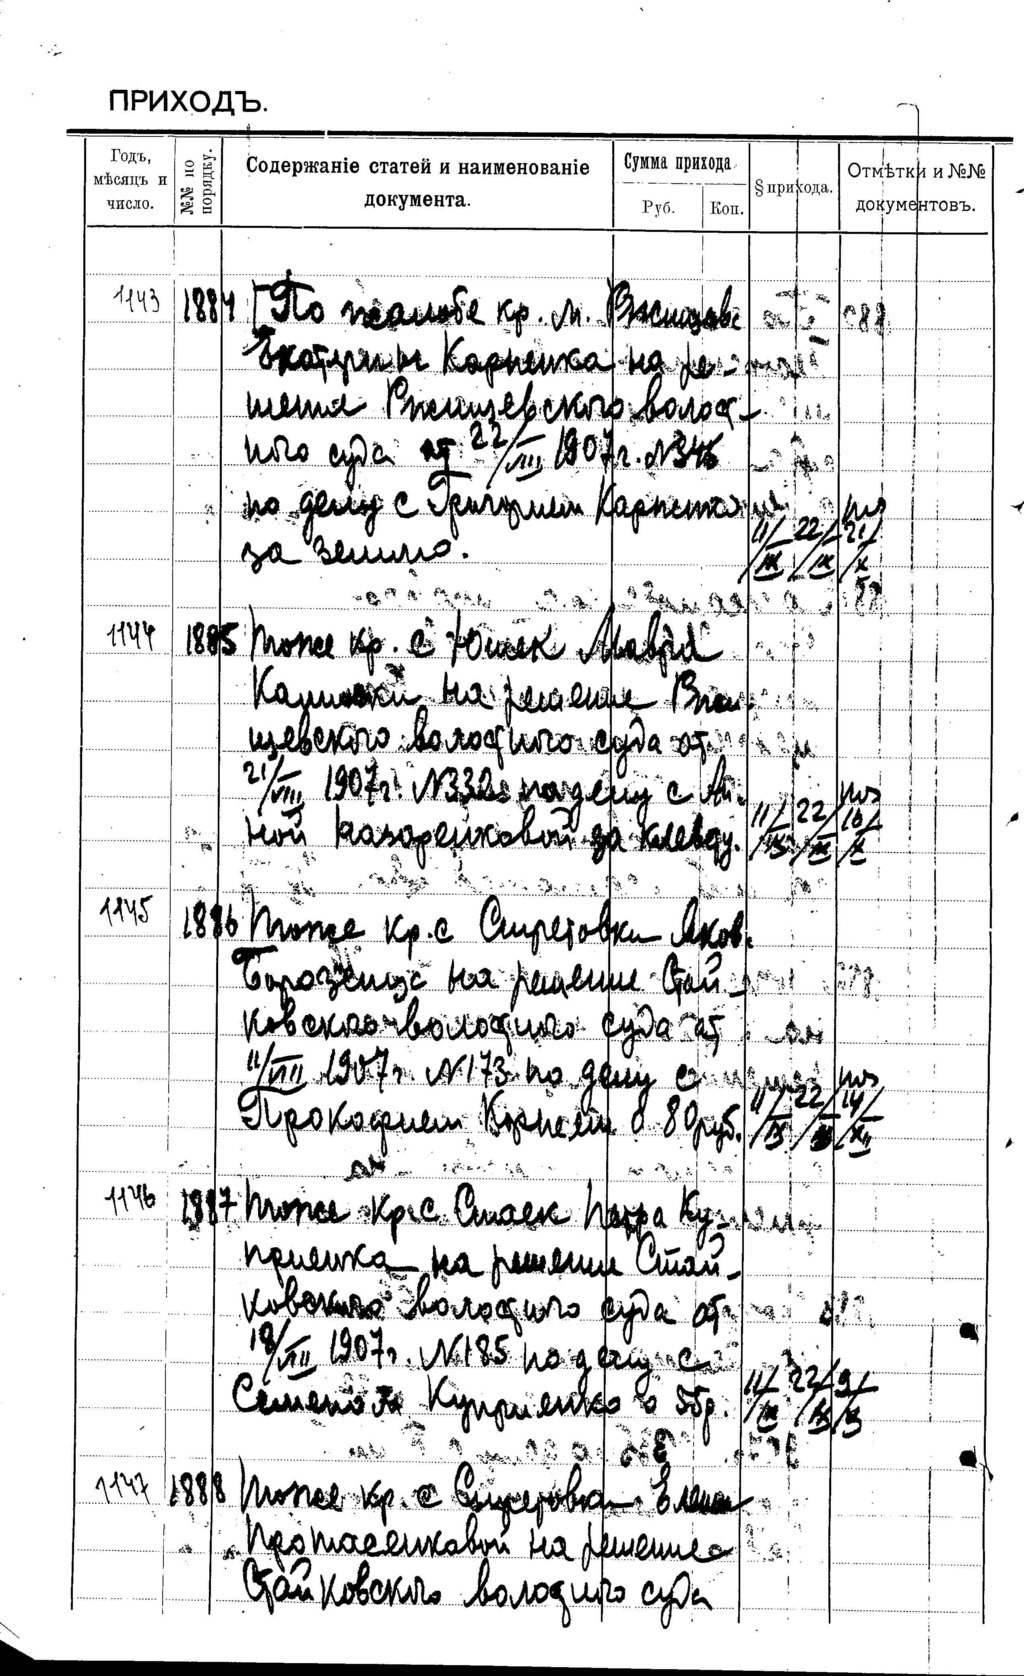 ПРИХОДЪ.
Годъ, мѣсяцъ и число.
№№ по порядку.
Содержаніе статей и наименованіе документа.
Сумма прихода.
Руб.
Коп.
§ прихода.
Отмѣтки и №№ документовъ.
1143 1884 По жалобе кр. м. Ржищева
Екатерины Карпенка на ре-
шения Ржищевского волост-
ного суда от 22/VIII 1907 г. №346
по делу с Григорием Карпенком
за землю. 11/IX 22/IX 21/X
1144 1885 Тоже кр. с Юшек Мавра
на решение Ржи-
щевского волостного суда от
21/VIII 1907 г. №332 по делу с Ан-
ной Назаренковой за клевету. 11/IX 22/IX 16/X
1145 1886 Тоже кр. с Стретовки Яков
на решение Стай-
ковского волостного суда от
11/VIII 1907 г. №173 по делу с
Прокофием Корнеем о 80 руб. 11/IX 22/IX 14/XII
1146 1887 Тоже кр. с Стаек Петра Ку-
приенка на решение Стай-
ковского волостного суда от
18/VIII 1907 г. №185 по делу с
Семеном Куприенко о 55р. 11/IX 22/IX 9/X
1147 1888 Тоже кр. с Стретовки Елены
Протасенковой на решение
Стайковского волостного суда